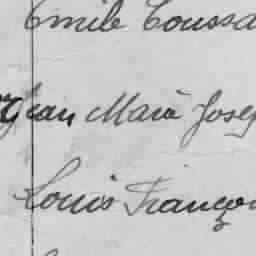 Emile Toussa
Jean Marie Josep
Louis Françoi